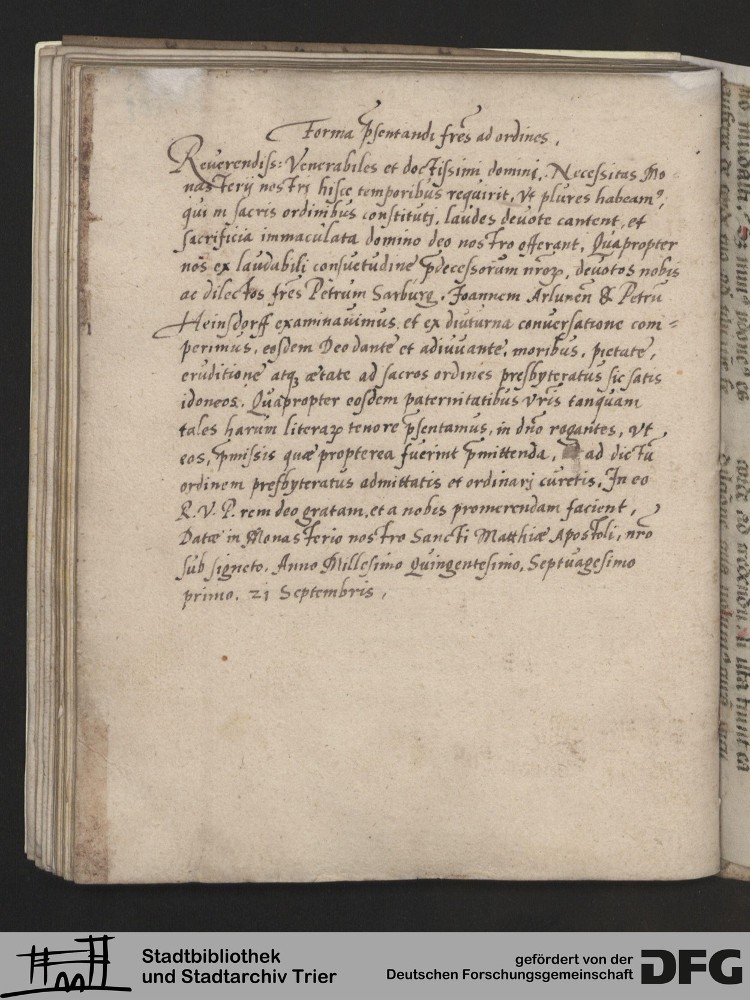 Forma p̄sentandi fr̄es ad ordines.
Reuerendiss: Venerabiles et doctissimi domini. Necessitas Mo
nasterij nostri hisce temporibus requirit, vt plures habeamꝰ,
qui in sacris ordinibus constituti, laudes deuote cantent, et
sacrificia immaculata domino deo nostro offerant. Quapropter
nos ex laudabili consuetudine p̄decessorum nr̄orꝫ, deuotos nobis
ac dilectos fr̄es Petrum Sarburg, Joannem Arlunen̄ & Petrū
Heinsdorff examinauimus et ex diuturna conuersatione com=
perimus, eosdem Deo dante et adiuuante, moribus, pietate,
eruditione atqꝫ ætate ad sacros ordines presbyteratus sic satis
idoneos. Quapropter eosdem paternitatibus vr̄is tanquam
tales harum literarꝫ tenore p̄sentamus, in dn̄o rogantes, vt
eos, p̄missis quæ propterea fuerint p̄mittenda, ad dictū
ordinem presbyteratus admittatis et ordinarj curetis. In eo
R. V. P. rem deo gratam, et a nobis promerendam facient,
Datæ in Monasterio nostro Sancti Matthiæ Apostoli, nr̄o
sub signeto. Anno Millesimo Quingentesimo, Septuagesimo
primo. 21 Septembris,
Stadtbibliothek
und Stadtarchiv Trier
gefördert von der
Deutschen Forschungsgemeinschaft
DFG